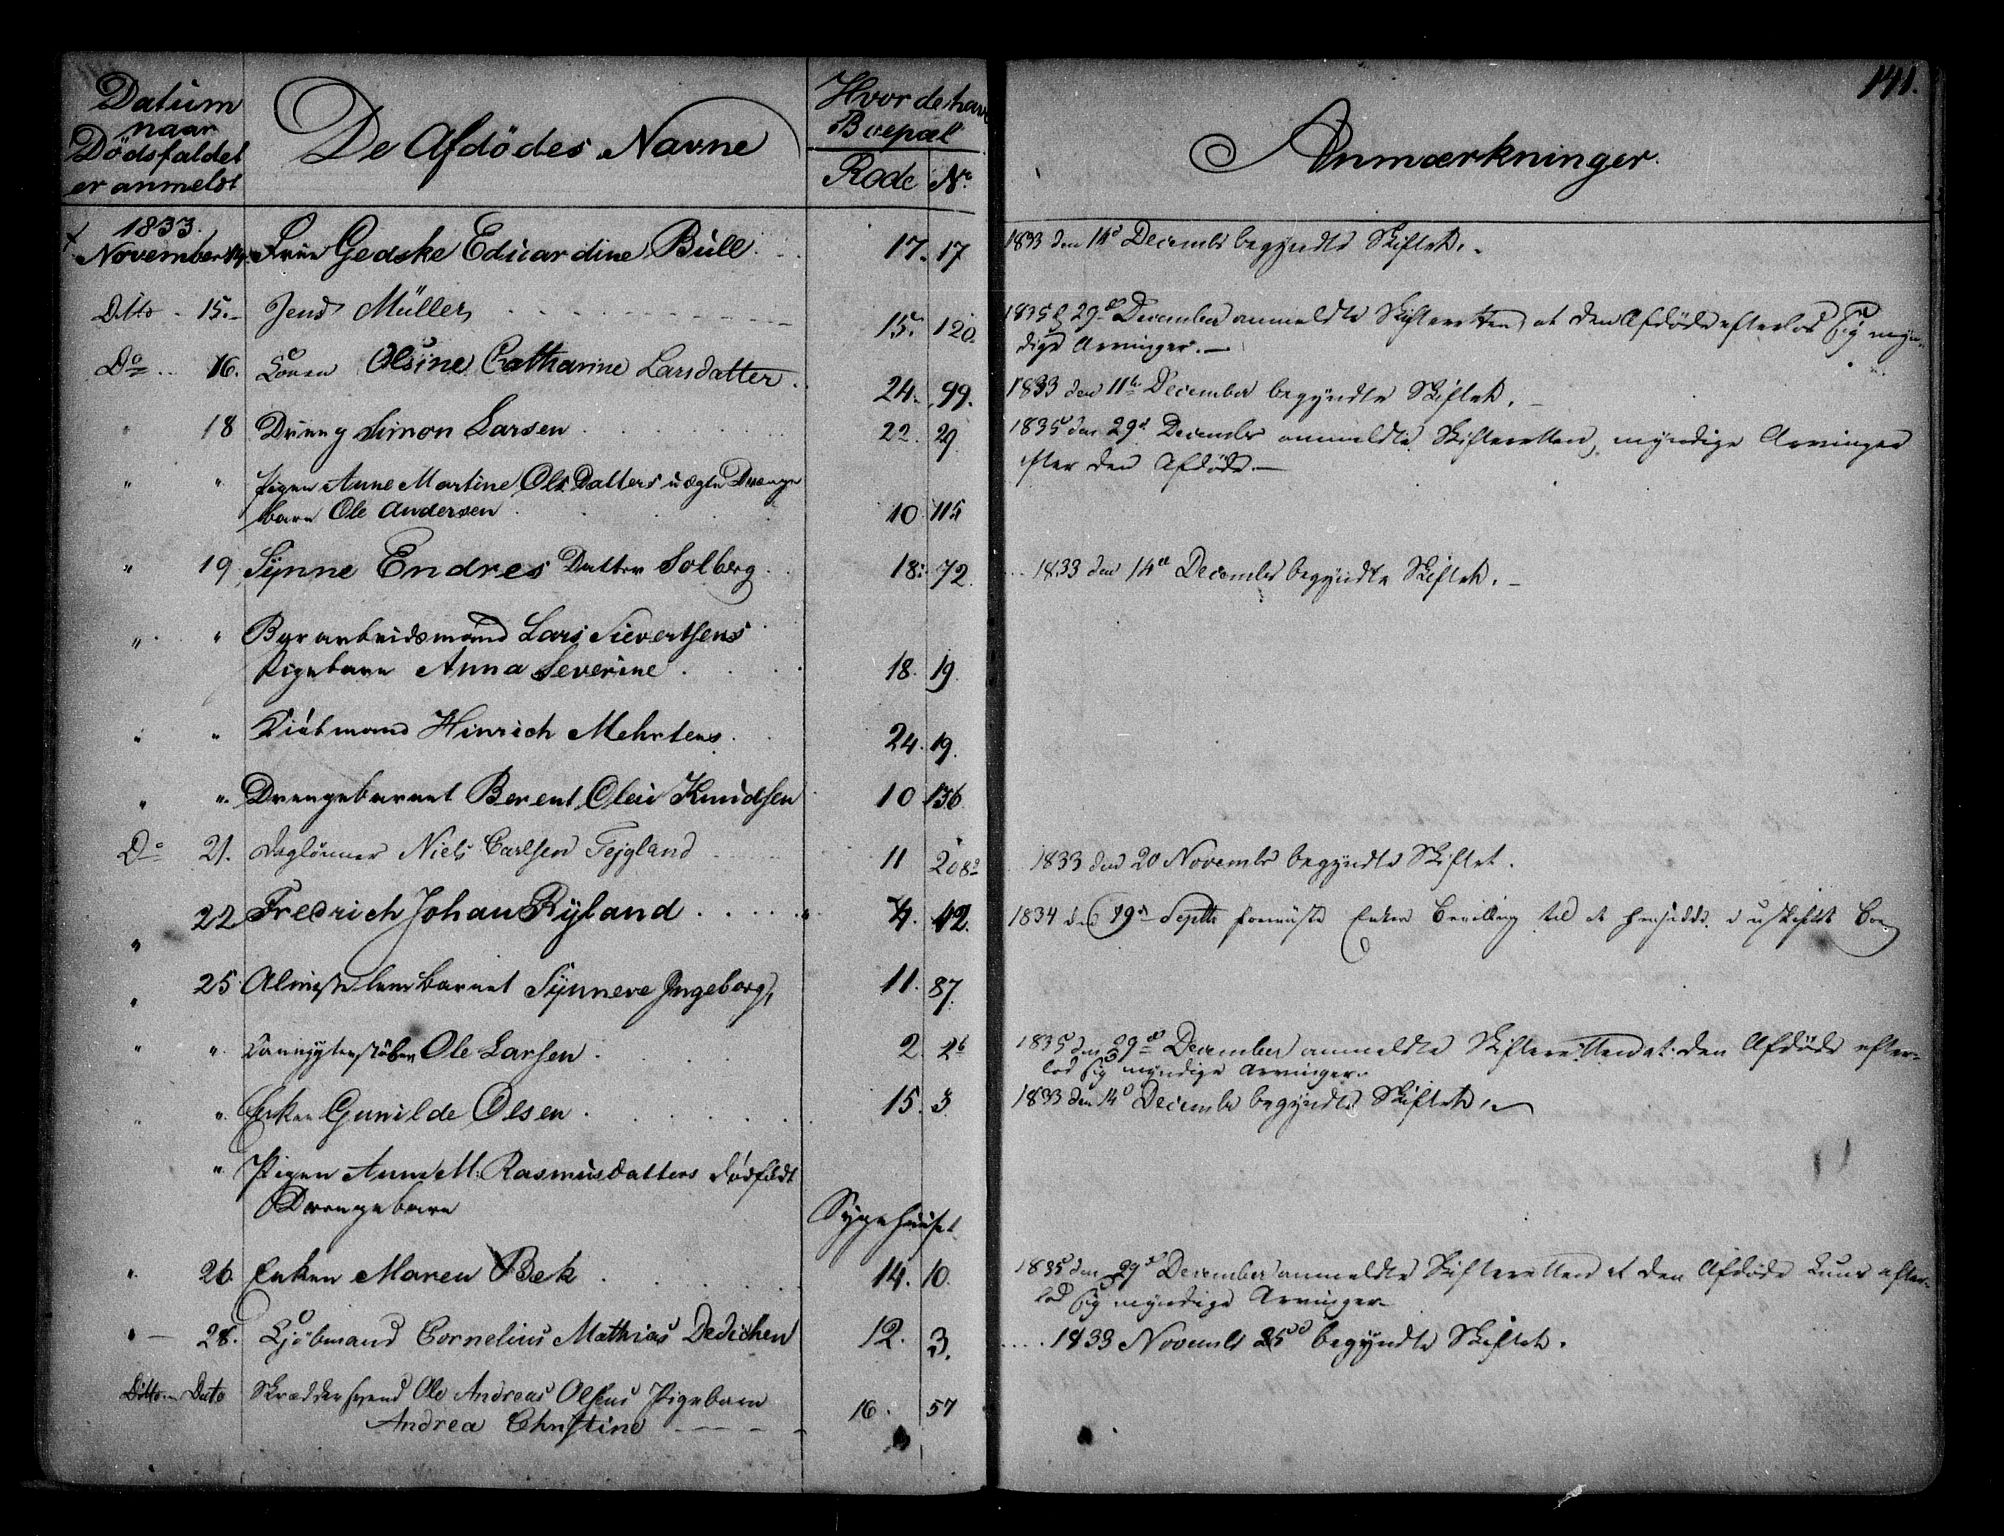 141.
Datum naar Dødsfaldet er anmeldt
De Afdödes Navne
Hvor de have Boepæl
Rode No
Anmærkninger
1833.
November 14. Frue Gedske Eduardine Bull 17. 17 1833 den 14d December begyndte Skiftet.
Ditto 15. Jens Müller 15. 120. 1835 d 29d December anmeldte Skifteretten at den Afdøde efterlod sig myn-
dige Arvinger.
Do 16. Konen Olsine Catharine Larsdatter 24. 99. 1833 den 11te December begyndte Skiftet.
" 18 Dreng Simon Larsen 22. 29 1835 den 29d December anmeldte Skifteretten, myndige Arvinger
efter den Afdøde.
" " Pigen Anne Martine Ols Datters uægte Drenge
barn Ole Andersen 10 115
" 19 Synne Endres Datter Solberg 18. 72. 1833 den 14d December begyndte Skiftet.
" " Byr arbeidsmand Lars Sievertsens
Pigebarn Anna Severine 18. 19.
" " Kiøbmand Hinrich Mehrtens 24. 19.
" " Drengebarnet Berent Olai Knudsen 10 136
Do 21. Daglønner Niels Carlsen Tejgland 11 208a 1833 den 20 Novembr begyndte Skiftet.
" 22 Fredrich Johan Ryland 4. 42. 1834 d. 19d Septb foreviiste Enken Bevilling til at hensidde i uskiftet Boe
" 25 Almisselem barnet Synneve Ingeborg, 11. 87.
" " Kandgytersvøben Ole Larsen 2 26 1835 den 29d December anmeldte Skifteretten at den Afdøde efter-
lod sig myndige Arvinger.
" " Enken Gunilde Olsen 15. 3 1833 den 14d December begyndte Skiftet.
" Pigen Anne M. Rasmusdatters dødfødt
Drengebarn Sygehuuset
" 26. Enken Maren Bek 14. 10. 1835 den 29d December anmeldte Skifteretten at den Afdøde Kuns efter-
lod sig myndige Arvinger
" 28. Kjøbmand Cornelius Mathias Dedichen 12. 3. 1833 Novembr 25de begyndte Skiftet.
Ditto Dato Skræddersvend Ole Andreas Olsens Pigebarn
Andrea Christine 16. 57